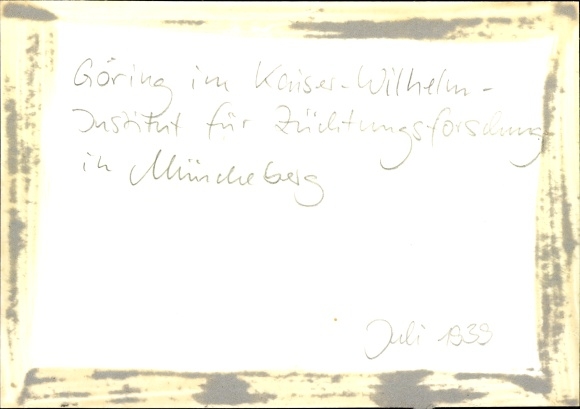 Göring im Kaiser-Wilhelm-
Institut für Züchtungsforschung
in Müncheberg
Juli 1939